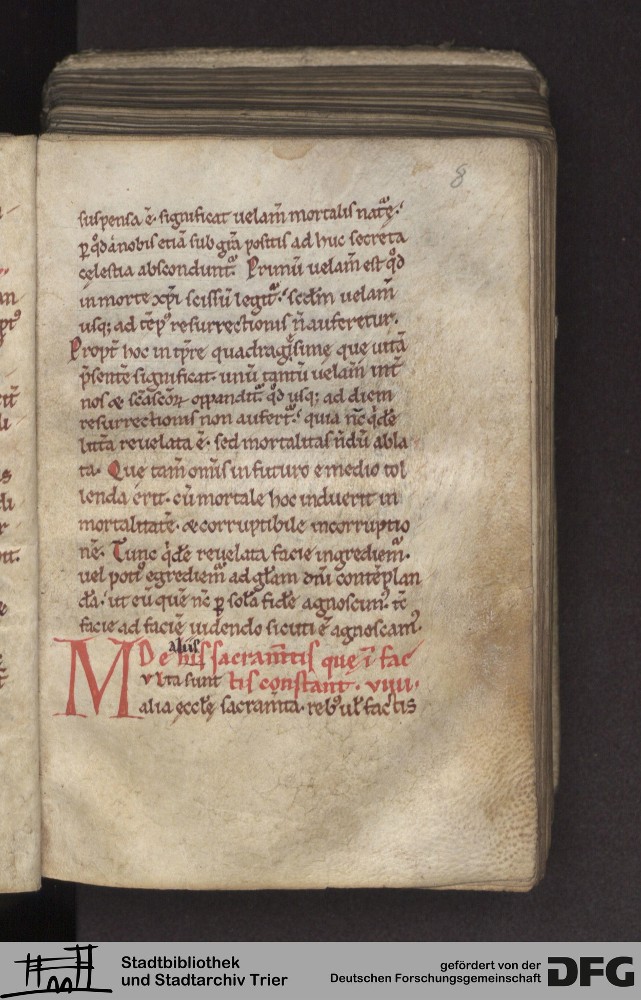 8
suspensa ē· significat uelam̄ mortalis natᵉ·
ꝑ qd̊ a nobis etiā sub gr̄a positis ad huc secreta
cęlestia abscondunt᷑· Primū uelam̄ est qd̊
in morte xp̄i scissū legit᷑· sc̄dm̄ uelam̄
usq; ad tēp᷒ resurrectionis n̄ auferetur·
Propt̄ hoc in tp̄re quadragesimę que uitā
p̄sentē significat· unū tantū uelam̄ int̄
nos & sc̄a sc̄oꝝ oppandit᷑· qd̊ usq; ad diem
resurrectionis non aufert᷑· quia nc̄ qd̄e
litt̄a reuelata ē· sed mortalitas n̄dū abla
ta· Que tam̄ om̄is in futuro e medio tol
lenda erit· cū mortale hoc induerit in
mortalitatē· & corruptibile incorruptio
nē· Tunc qd̄e reuelata facie ingrediem᷑·
uel poti᷒ egrediem᷑ ad gl̄am dn̄i contēplan
dā· ut eū quē nc̄ ꝑ solā fidē agnoscim᷒· tc̄
facie ad faciē uidendo sicuti ē agnoscam᷒·
De his sacram̄tis quę ī fac
aliis
Mvlta sunt tis constant· viiii·
alia eccłę sacram̄ta· reb᷒ uł factis
Stadtbibliothek
und Stadtarchiv Trier
gefördert von der
Deutschen Forschungsgemeinschaft
DFG